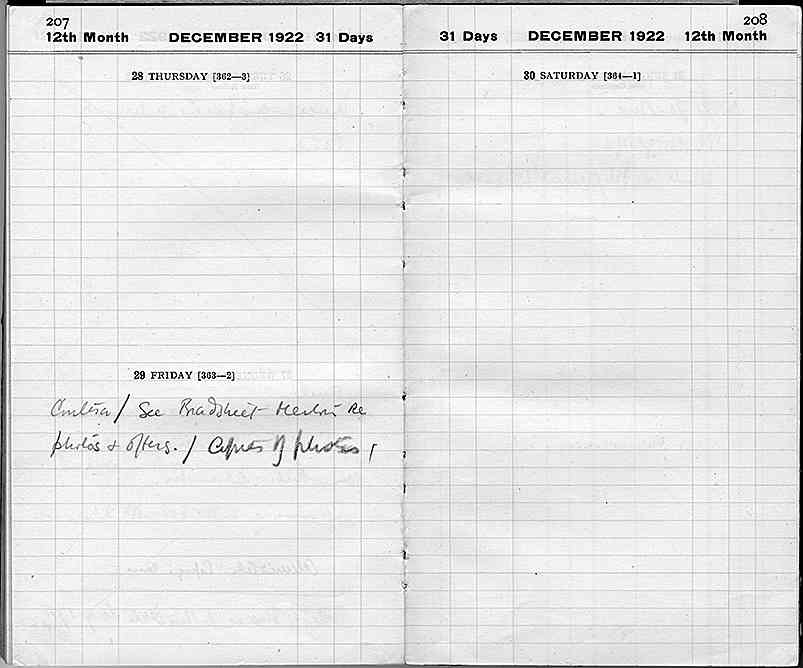 207
12th Month DECEMBER 1922 31 Days
28 THURSDAY [362—3]
29 FRIDAY [363—2]
/ See Bradstreet Merton re
photos & offers. / Copies of photos /
208
31 Days DECEMBER 1922 12th Month
30 SATURDAY [364—1]